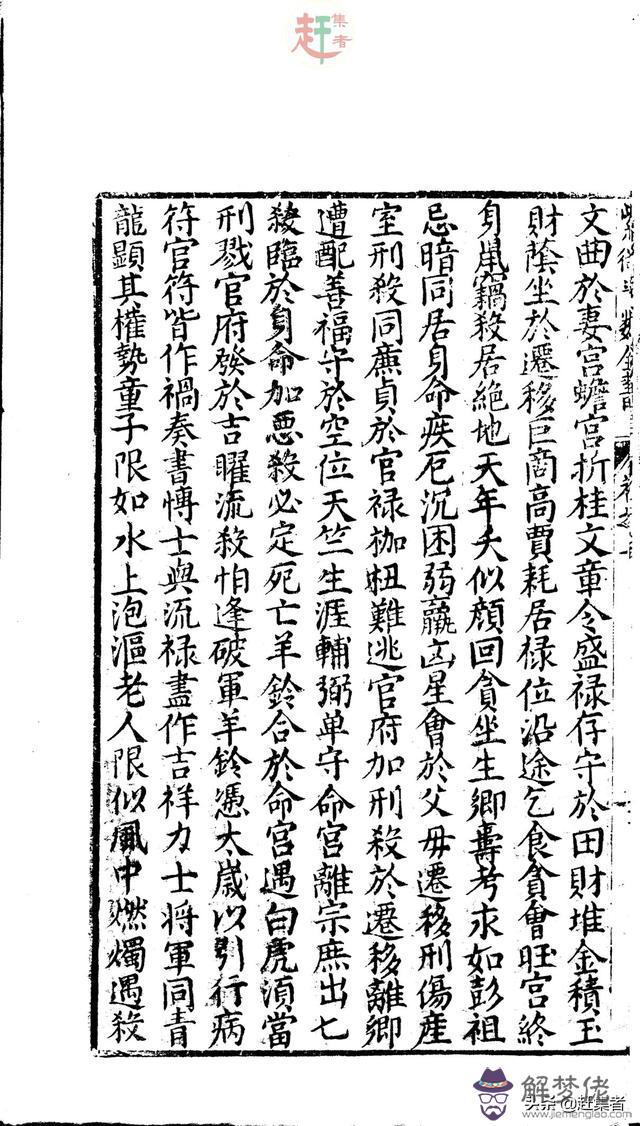 赶集者
文曲於妻宮蟾宮折桂文章令盛禄存守於田財堆金積玉
財蔭坐於遷移巨商高賈耗居禄位沿途乞食貪會旺宮終
身鼠竊殺居絶地天年夭似顔回貪坐生卿壽考求如彭祖
忌暗同居身命疾厄沉困弱羸凶星會於父母遷移刑傷産
室刑殺同廉貞於官禄枷杻難逃官府加刑殺於遷移離卿
遭配善福守於空位天竺生涯輔弼单守命宮離宗庶出七
殺臨於身命加恶殺必定死亡羊鈴合於命宮遇白虎須當
刑戮官府發於吉曜流殺怕逢破軍羊鈴憑太歲以引行病
符官符皆作禍奏書愽士與流禄盡作吉祥力士將軍同青
龍顯其權勢童子限如水上泡漚老人限似風中燃燭遇殺
解梦佬
头条@赶集者
www.jiemenglao.com